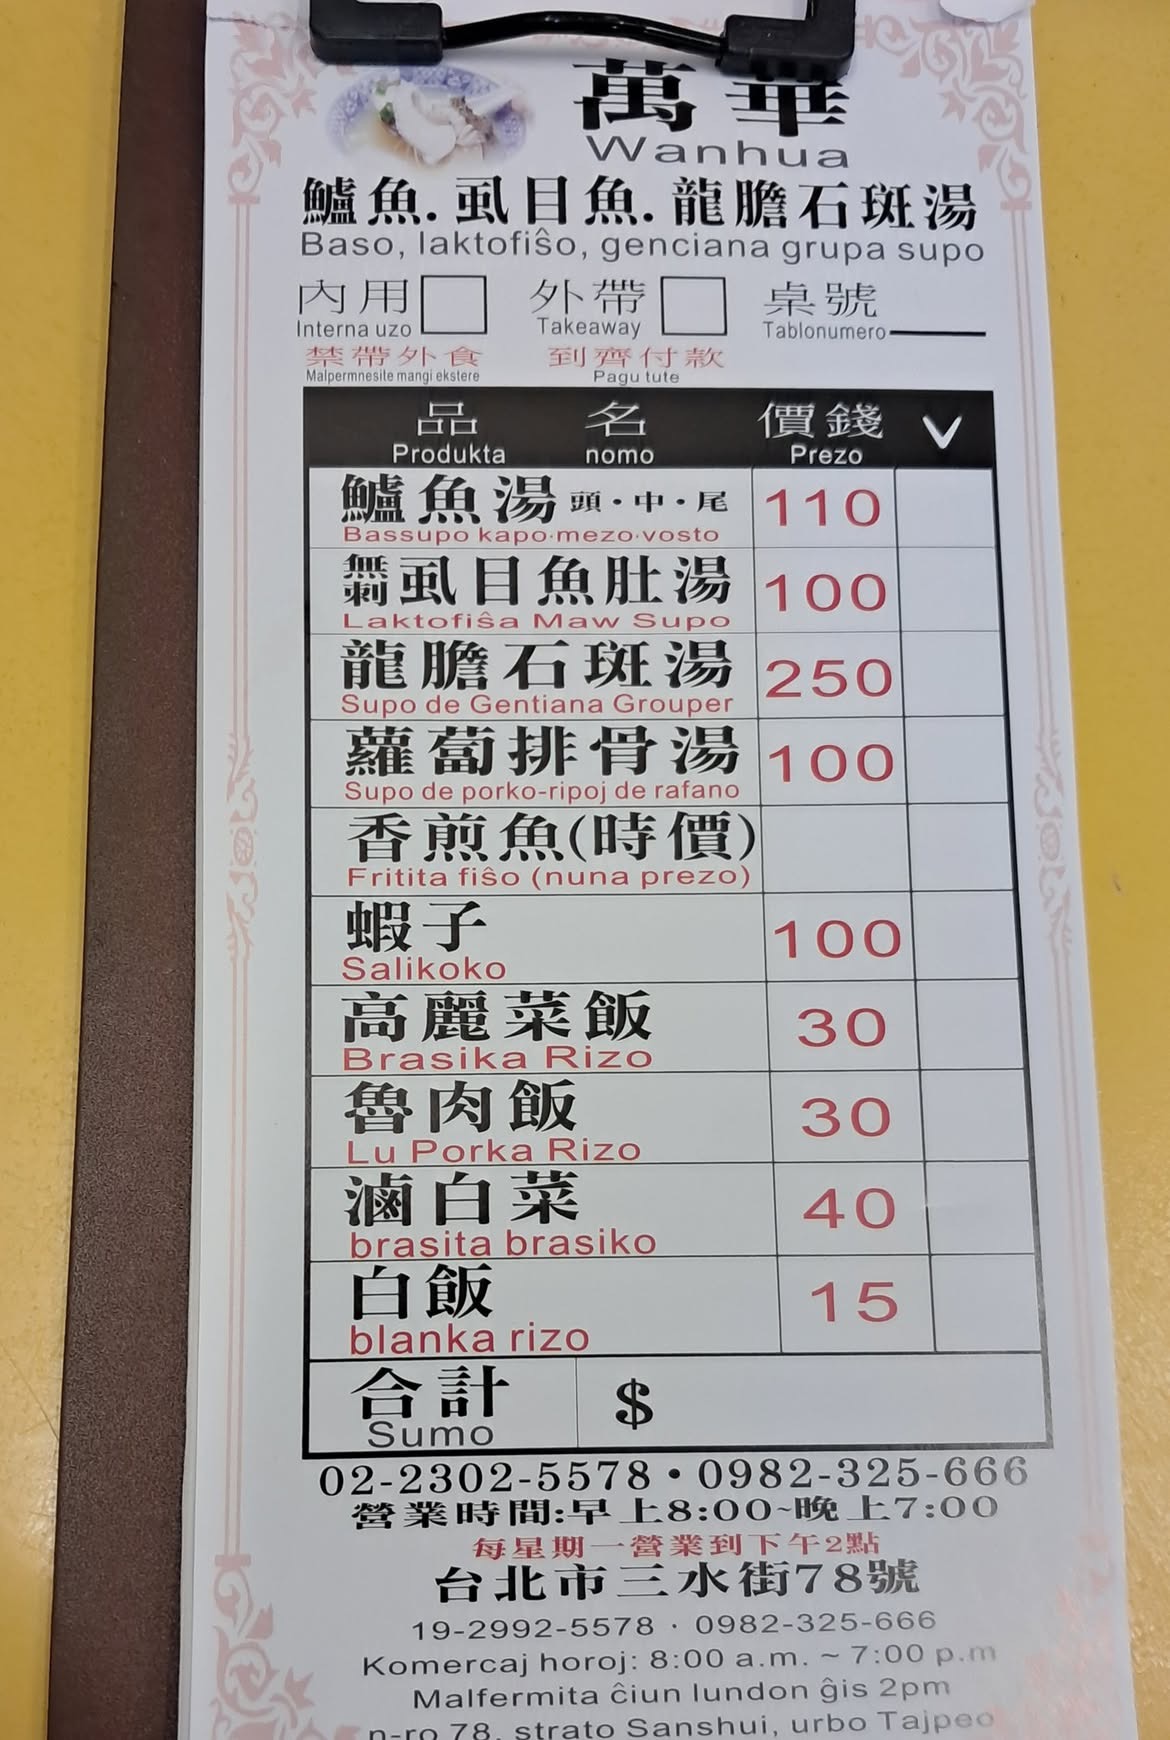 萬華
Wanhua
鱸魚.虱目魚.龍膽石斑湯
Baso, laktofiŝo, genciana grupa supo
內用 外帶 桌號
Interna uzo Takeaway Tablonumero
禁帶外食 到齊付款
Malpermnesite mangi ekstere Pagu tute
品 名 價錢 V
Produkta nomo Prezo
鱸魚湯 頭・中・尾 110
Bassupo kapo·mezo·vosto
無刺虱目魚肚湯 100
Laktofiŝa Maw Supo
龍膽石斑湯 250
Supo de Gentiana Grouper
蘿蔔排骨湯 100
Supo de porko-ripoj de rafano
香煎魚(時價)
Fritita fiŝo (nuna prezo)
蝦子 100
Salikoko
高麗菜飯 30
Brasika Rizo
魯肉飯 30
Lu Porka Rizo
滷白菜 40
brasita brasiko
白飯 15
blanka rizo
合計 $
Sumo
02-2302-5578・0982-325-666
營業時間:早上8:00~晚上7:00
每星期一營業到下午2點
台北市三水街78號
19-2992-5578 · 0982-325-666
Komercaj horoj: 8:00 a.m. ~ 7:00 p.m
Malfermita ĉiun lundon ĝis 2pm
n-ro 78, strato Sanshui, urbo Tajpeo